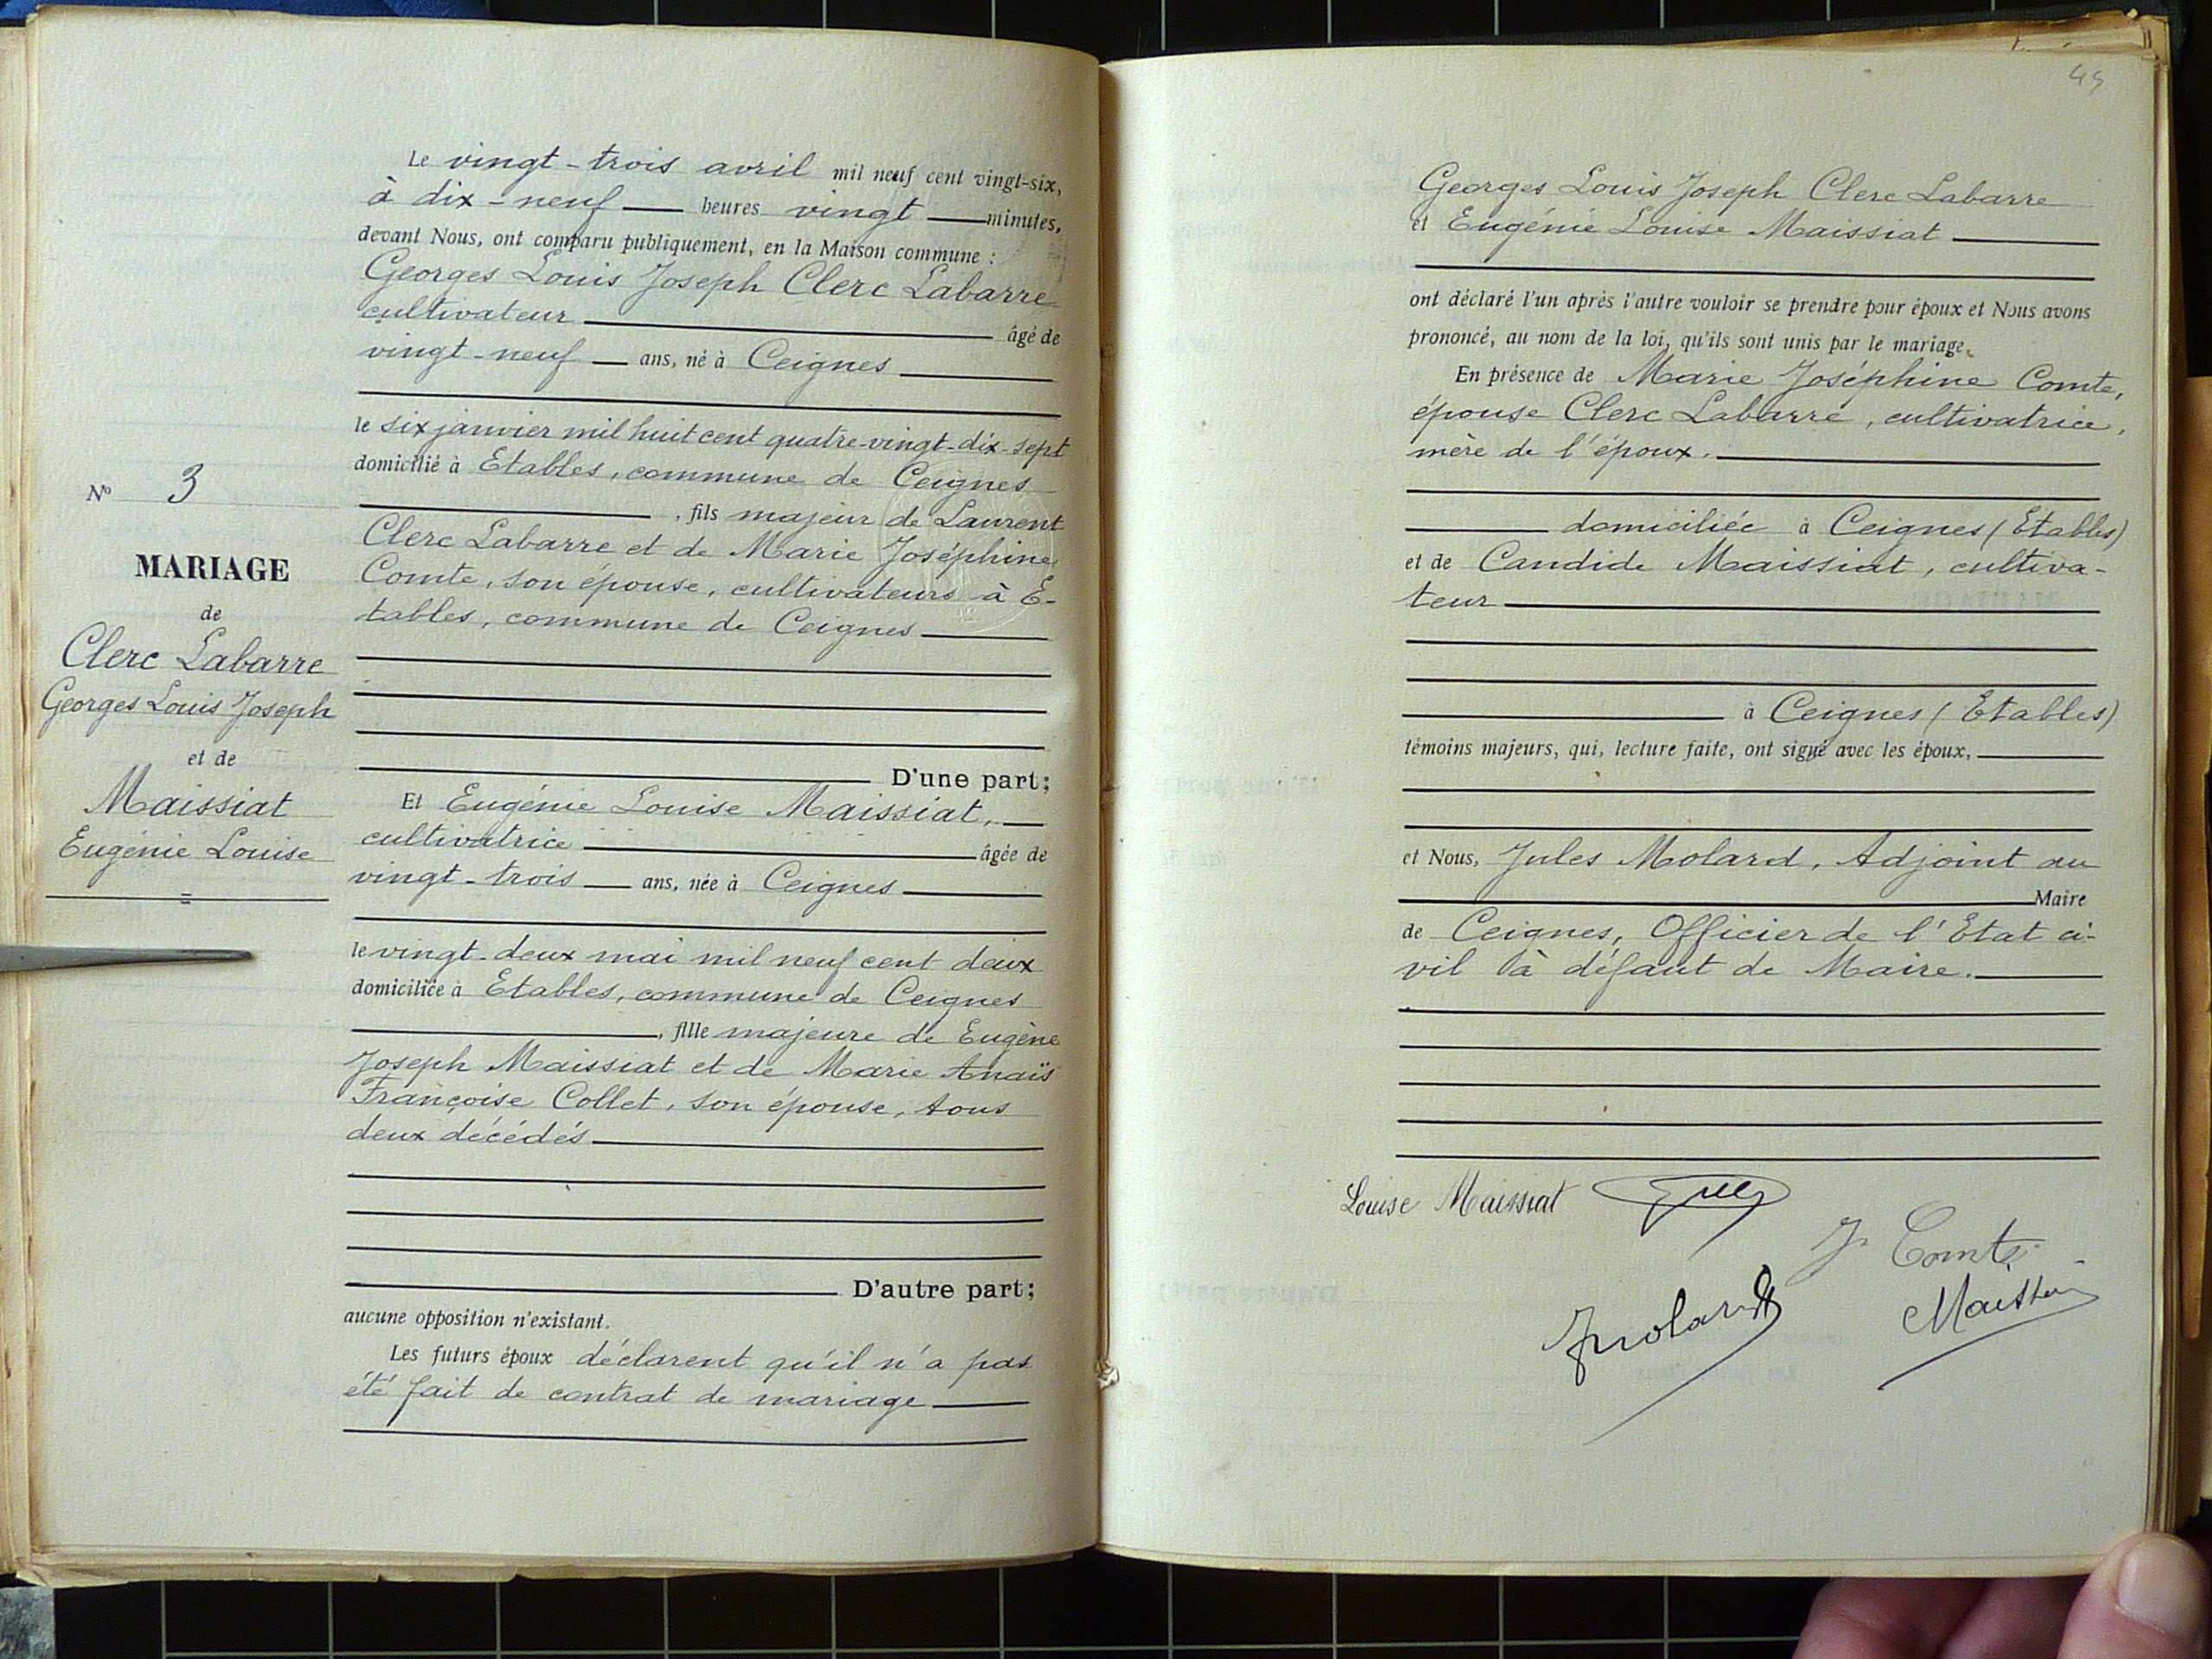 Le vingt-trois avril mil neuf cent vingt-six,
à dix-neuf heures vingt minutes,
devant Nous, ont comparu publiquement, en la Maison commune :
Georges Louis Joseph Clerc Labarre
cultivateur âgé de
vingt-neuf ans, né à Ceignes
le six janvier mil huit cent quatre-vingt-dix-sept
domicilié à Etables, commune de Ceignes
, fils majeur de Laurent
Clerc Labarre et de Marie Joséphine
Comte, son épouse, cultivateurs à E-
tables, commune de Ceignes
D'une part;
Et Eugénie Louise Maissiat,
cultivatrice âgée de
vingt-trois ans, née à Ceignes
le vingt-deux mai mil neuf cent deux
domiciliée à Etables, commune de Ceignes
, fille majeure de Eugène
Joseph Maissiat et de Marie Anaïs
Françoise Collet, son épouse, tous
deux décédés
D'autre part;
aucune opposition n'existant.
Les futurs époux déclarent qu'il n'a pas
été fait de contrat de mariage
N° 3
MARIAGE
de
Clerc Labarre
Georges Louis Joseph
et de
Maissiat
Eugénie Louise
49
Georges Louis Joseph Clerc Labarre
et Eugénie Louise Maissiat
ont déclaré l'un après l'autre vouloir se prendre pour époux et Nous avons
prononcé, au nom de la loi, qu'ils sont unis par le mariage.
En présence de Marie Joséphine Comte,
épouse Clerc Labarre, cultivatrice,
mère de l'époux.
domiciliée à Ceignes (Etables)
et de Candide Maissiat, cultiva-
teur
à Ceignes (Etables)
témoins majeurs, qui, lecture faite, ont signé avec les époux,
et Nous, Jules Molard, Adjoint au
Maire
de Ceignes, Officier de l'Etat ci-
vil à défaut de Maire.
Louise Maissiat
J Comte
Molard